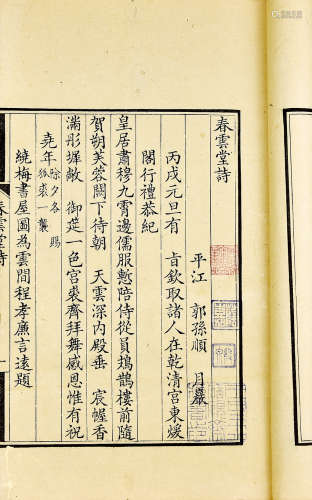 春雲堂詩
平江 郭孫順 月巖
丙戌元旦有 旨欽取諸人在乾清宮東煖
閣行禮恭紀
皇居肅穆九霄邊儒服慙陪侍從員鳷鵲樓前隨
賀朔芙蓉闕下待朝 天雲深內殿垂 宸幄香
滿彤墀敞 御筵一色宮裘齊拜舞感恩惟有祝
堯年 除夕各賜狐裘一襲
繞梅書屋圖為雲間程孝廉言遠題
春雲堂詩